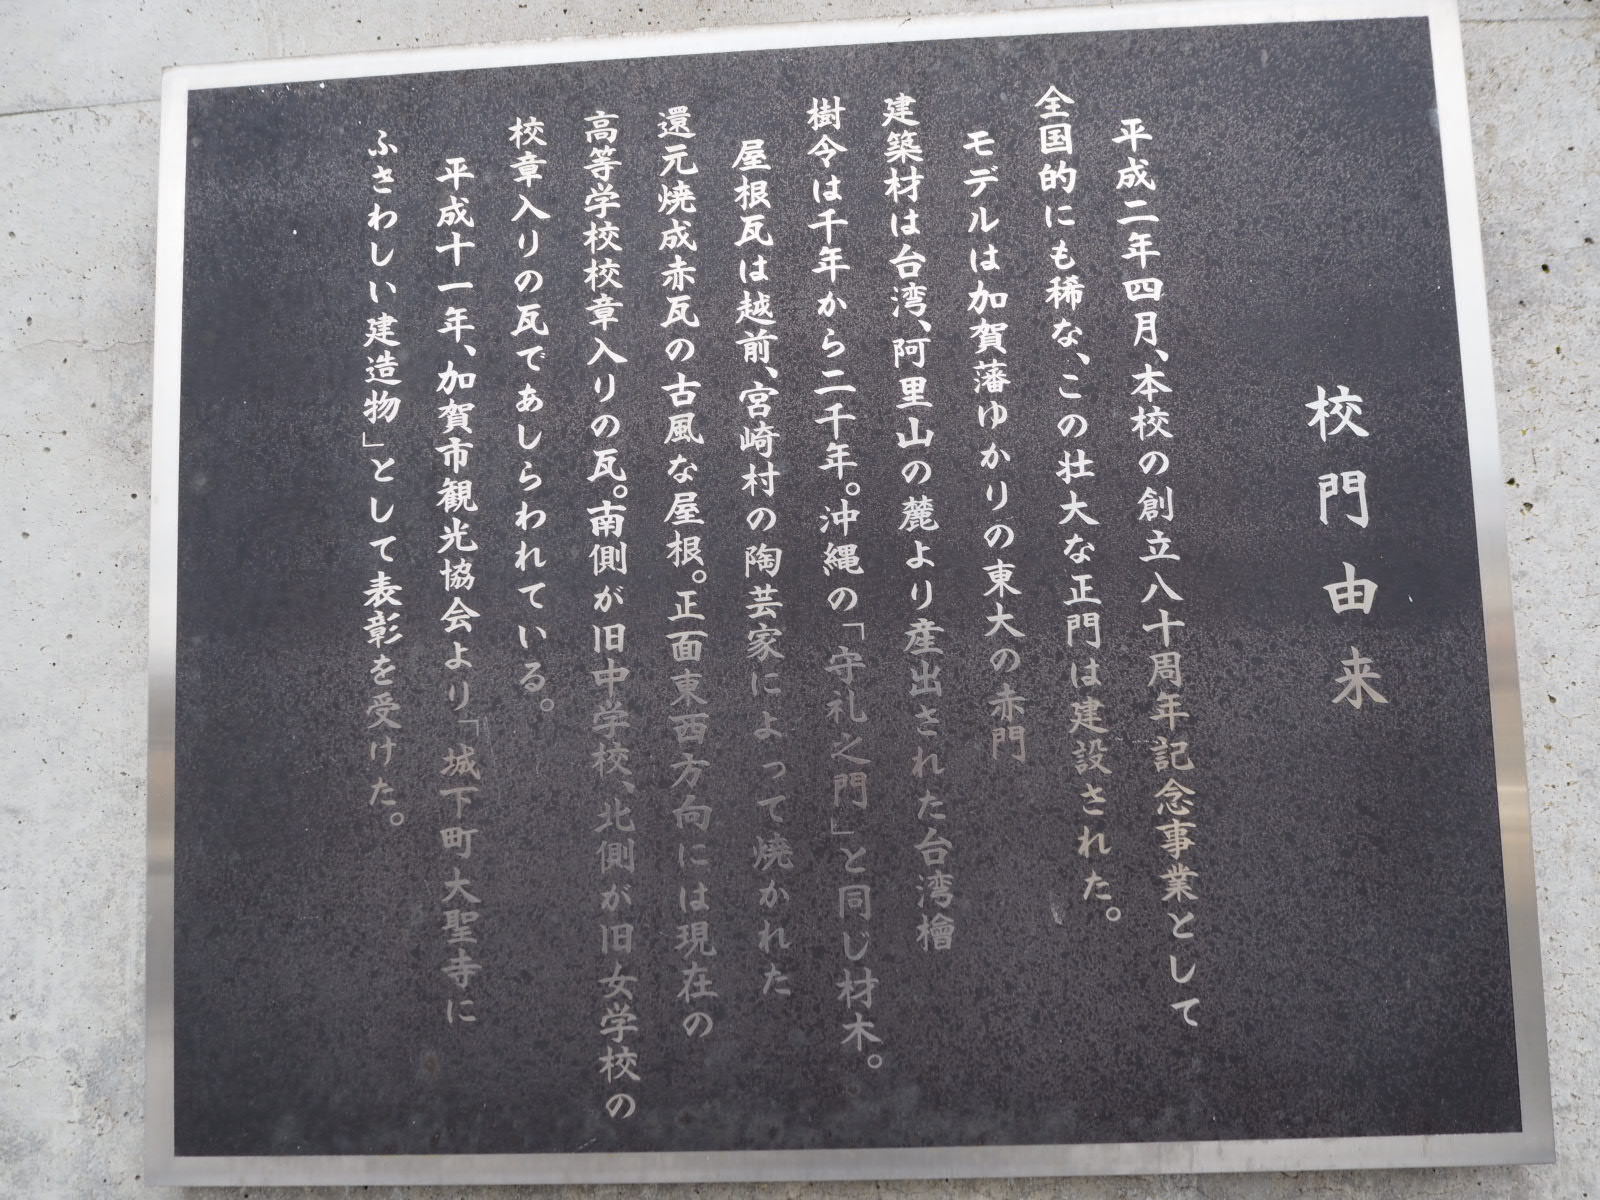 校門由来
平成二年四月、本校の創立八十周年記念事業として
全国的にも稀な、この壮大な正門は建設された。
モデルは加賀藩ゆかりの東大の赤門
建築材は台湾、阿里山の麓より産出された台湾檜
樹令は千年から二千年。沖縄の「守礼之門」と同じ材木。
屋根瓦は越前、宮崎村の陶芸家によって焼かれた
還元焼成赤瓦の古風な屋根。正面東西方向には現在の
高等学校校章入りの瓦。南側が旧中学校、北側が旧女学校の
校章入りの瓦であしらわれている。
平成十一年、加賀市観光協会より「城下町大聖寺に
ふさわしい建造物」として表彰を受けた。